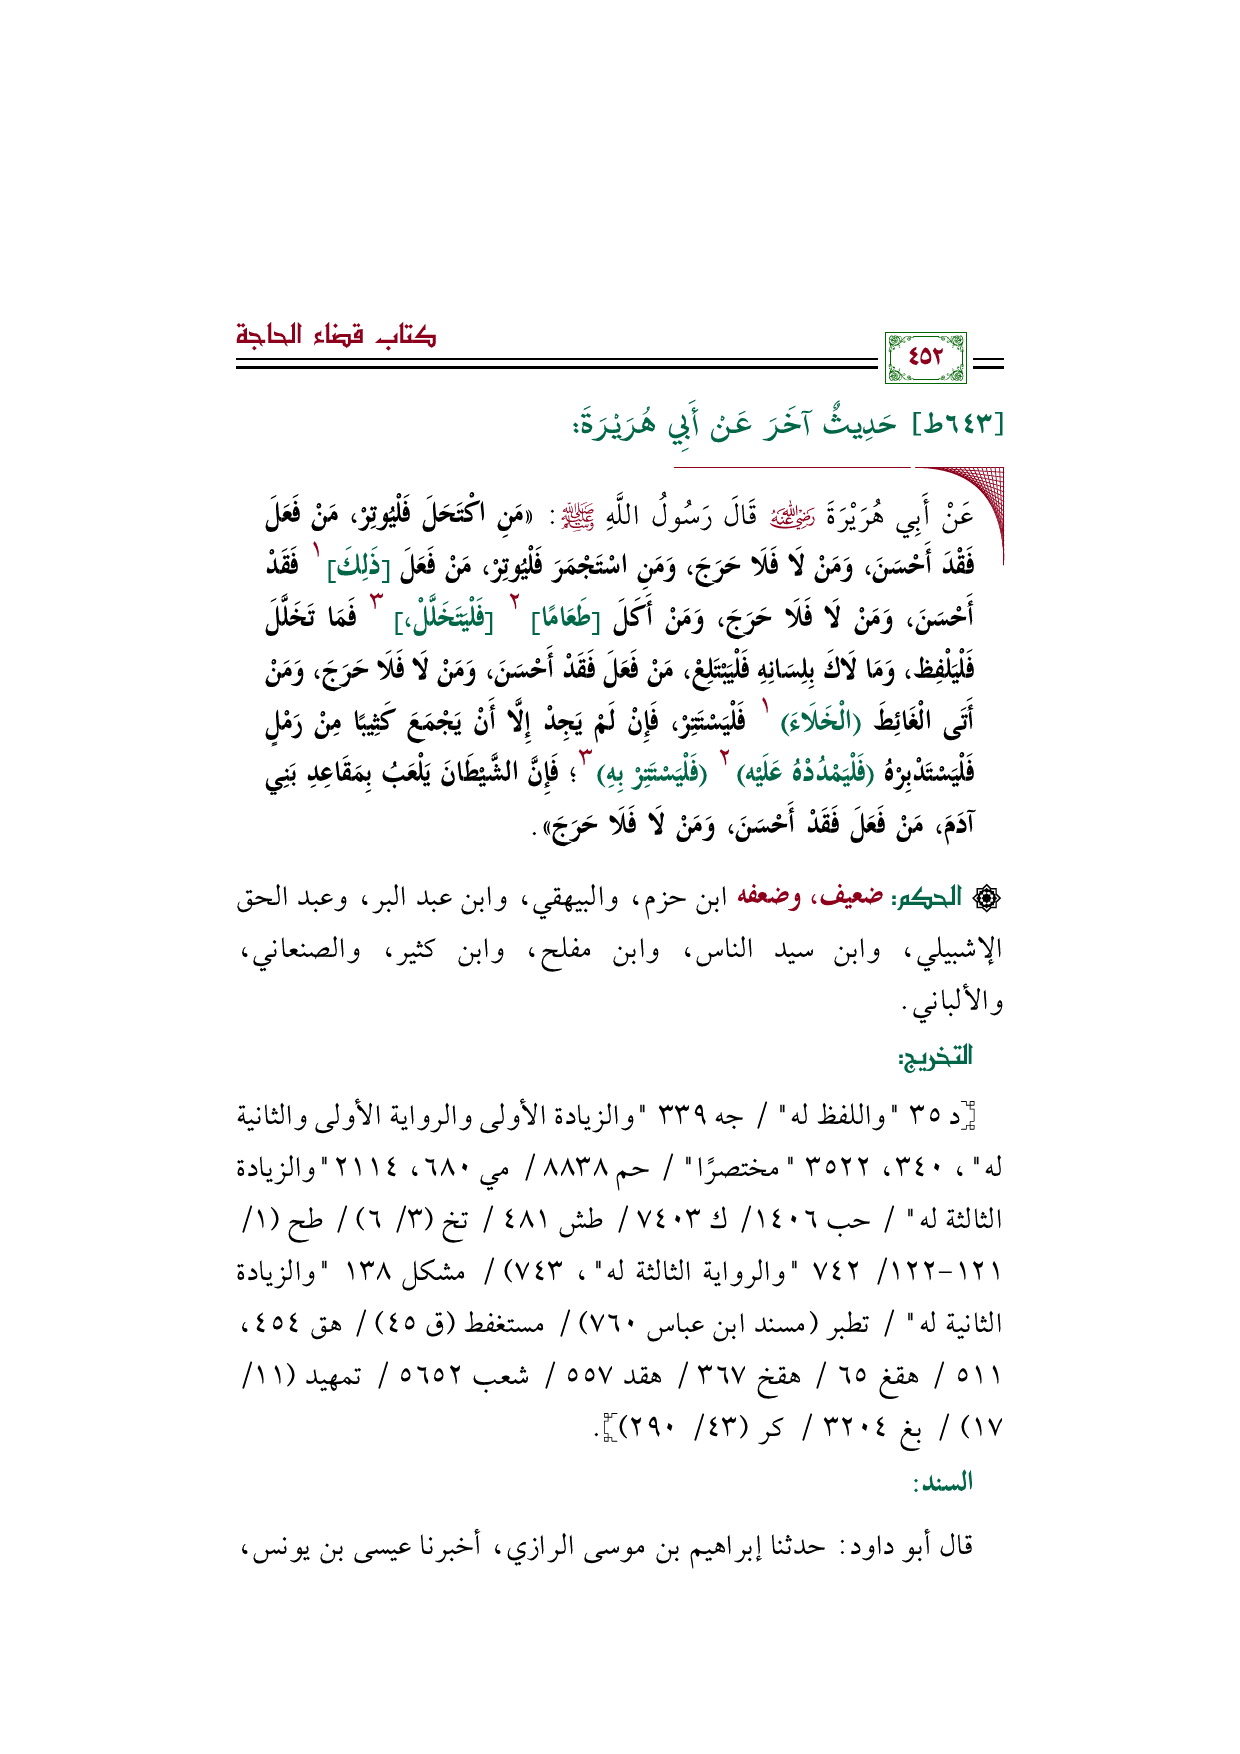 كتاب قضاء الحاجة
٤٥٢
[٦٤٣ط] حَدِيثٌ آخَرَ عَنْ أَبِي هُرَيْرَةَ:
عَنْ أَبِي هُرَيْرَةَ رضي الله عنه قَالَ رَسُولُ اللَّهِ ﷺ: «مَنِ اكْتَحَلَ فَلْيُوتِرْ، مَنْ فَعَلَ
فَقْدَ أَحْسَنَ، وَمَنْ لَا فَلَا حَرَجَ، وَمَنِ اسْتَجْمَرَ فَلْيُوتِرْ، مَنْ فَعَلَ [ذَلِكَ]١ فَقَدْ
أَحْسَنَ، وَمَنْ لَا فَلَا حَرَجَ، وَمَنْ أَكَلَ [طَعَامًا]٢ [فَلْيَتَخَلَّلْ،]٣ فَمَا تَخَلَّلَ
فَلْيَلْفِظ، وَمَا لَاكَ بِلِسَانِهِ فَلْيَبْتَلِعْ، مَنْ فَعَلَ فَقَدْ أَحْسَنَ، وَمَنْ لَا فَلَا حَرَجَ، وَمَنْ
أَتَى الْغَائِطَ (الْخَلَاءَ)١ فَلْيَسْتَتِرْ، فَإِنْ لَمْ يَجِدْ إِلَّا أَنْ يَجْمَعَ كَثِيبًا مِنْ رَمْلٍ
فَلْيَسْتَدْبِرْهُ (فَلْيَمْدُدْهُ عَلَيْه)٢ (فَلْيَسْتَتِرْ بِهِ)٣؛ فَإِنَّ الشَّيْطَانَ يَلْعَبُ بِمَقَاعِدِ بَنِي
آدَمَ، مَنْ فَعَلَ فَقَدْ أَحْسَنَ، وَمَنْ لَا فَلَا حَرَجَ».
الحكم: ضعيف، وضعفه ابن حزم، والبيهقي، وابن عبد البر، وعبد الحق
الإشبيلي، وابن سيد الناس، وابن مفلح، وابن كثير، والصنعاني،
والألباني.
التخريج:
[د ٣٥ "واللفظ له" / جه ٣٣٩ "والزيادة الأولى والرواية الأولى والثانية
له"، ٣٤٠، ٣٥٢٢ "مختصرًا" / حم ٨٨٣٨ / مي ٦٨٠، ٢١١٤ "والزيادة
الثالثة له" / حب ١٤٠٦/ ك ٧٤٠٣ / طش ٤٨١ / تخ (٣/ ٦) / طح (١/
١٢١-١٢٢/ ٧٤٢ "والرواية الثالثة له"، ٧٤٣) / مشكل ١٣٨ "والزيادة
الثانية له" / تطبر (مسند ابن عباس ٧٦٠) / مستغفط (ق ٤٥) / هق ٤٥٤،
٥١١ / هقغ ٦٥ / هقخ ٣٦٧ / هقد ٥٥٧ / شعب ٥٦٥٢ / تمهيد (١١/
١٧) / بغ ٣٢٠٤ / كر (٤٣/ ٢٩٠)].
السند:
قال أبو داود: حدثنا إبراهيم بن موسى الرازي، أخبرنا عيسى بن يونس،